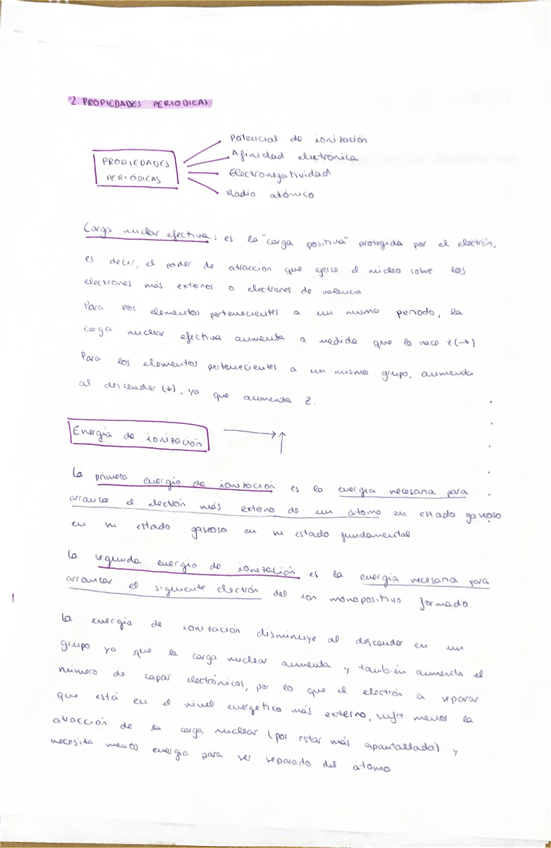 2. PROPIEDADES PERIODICAS
PROPIEDADES
PERIÓDICAS
Potencial de ionización
Afinidad electrónica
Electronegatividad
Radio atómico
Carga nuclear efectiva: es la "carga positiva" protegida por el electrón,
es decir, el poder de atracción que ejerce el núcleo sobre los
electrones más externos o electrones de valencia
Para los elementos pertenecientes a un mismo periodo, la
carga nuclear efectiva aumenta a medida que lo hace Z (→)
Para los elementos pertenecientes a un mismo grupo, aumenta
al descender (↓), ya que aumenta Z.
Energía de ionización → ↑
La primera energía de ionización es la energía necesaria para
arrancar el electrón más externo de un átomo en estado gaseoso
en su estado gaseoso en su estado fundamental
La segunda energía de ionización es la energía necesaria para
arrancar el siguiente electrón del ión monopositivo formado.
La energía de ionización disminuye al descender en un
grupo ya que la carga nuclear aumenta y también aumenta el
número de capas electrónicas, por lo que el electrón a separar
que está en el nivel energético más externo, sufre menos la
atracción de la carga nuclear (por estar más apantallado) y
necesita menos energía para ser separado del átomo